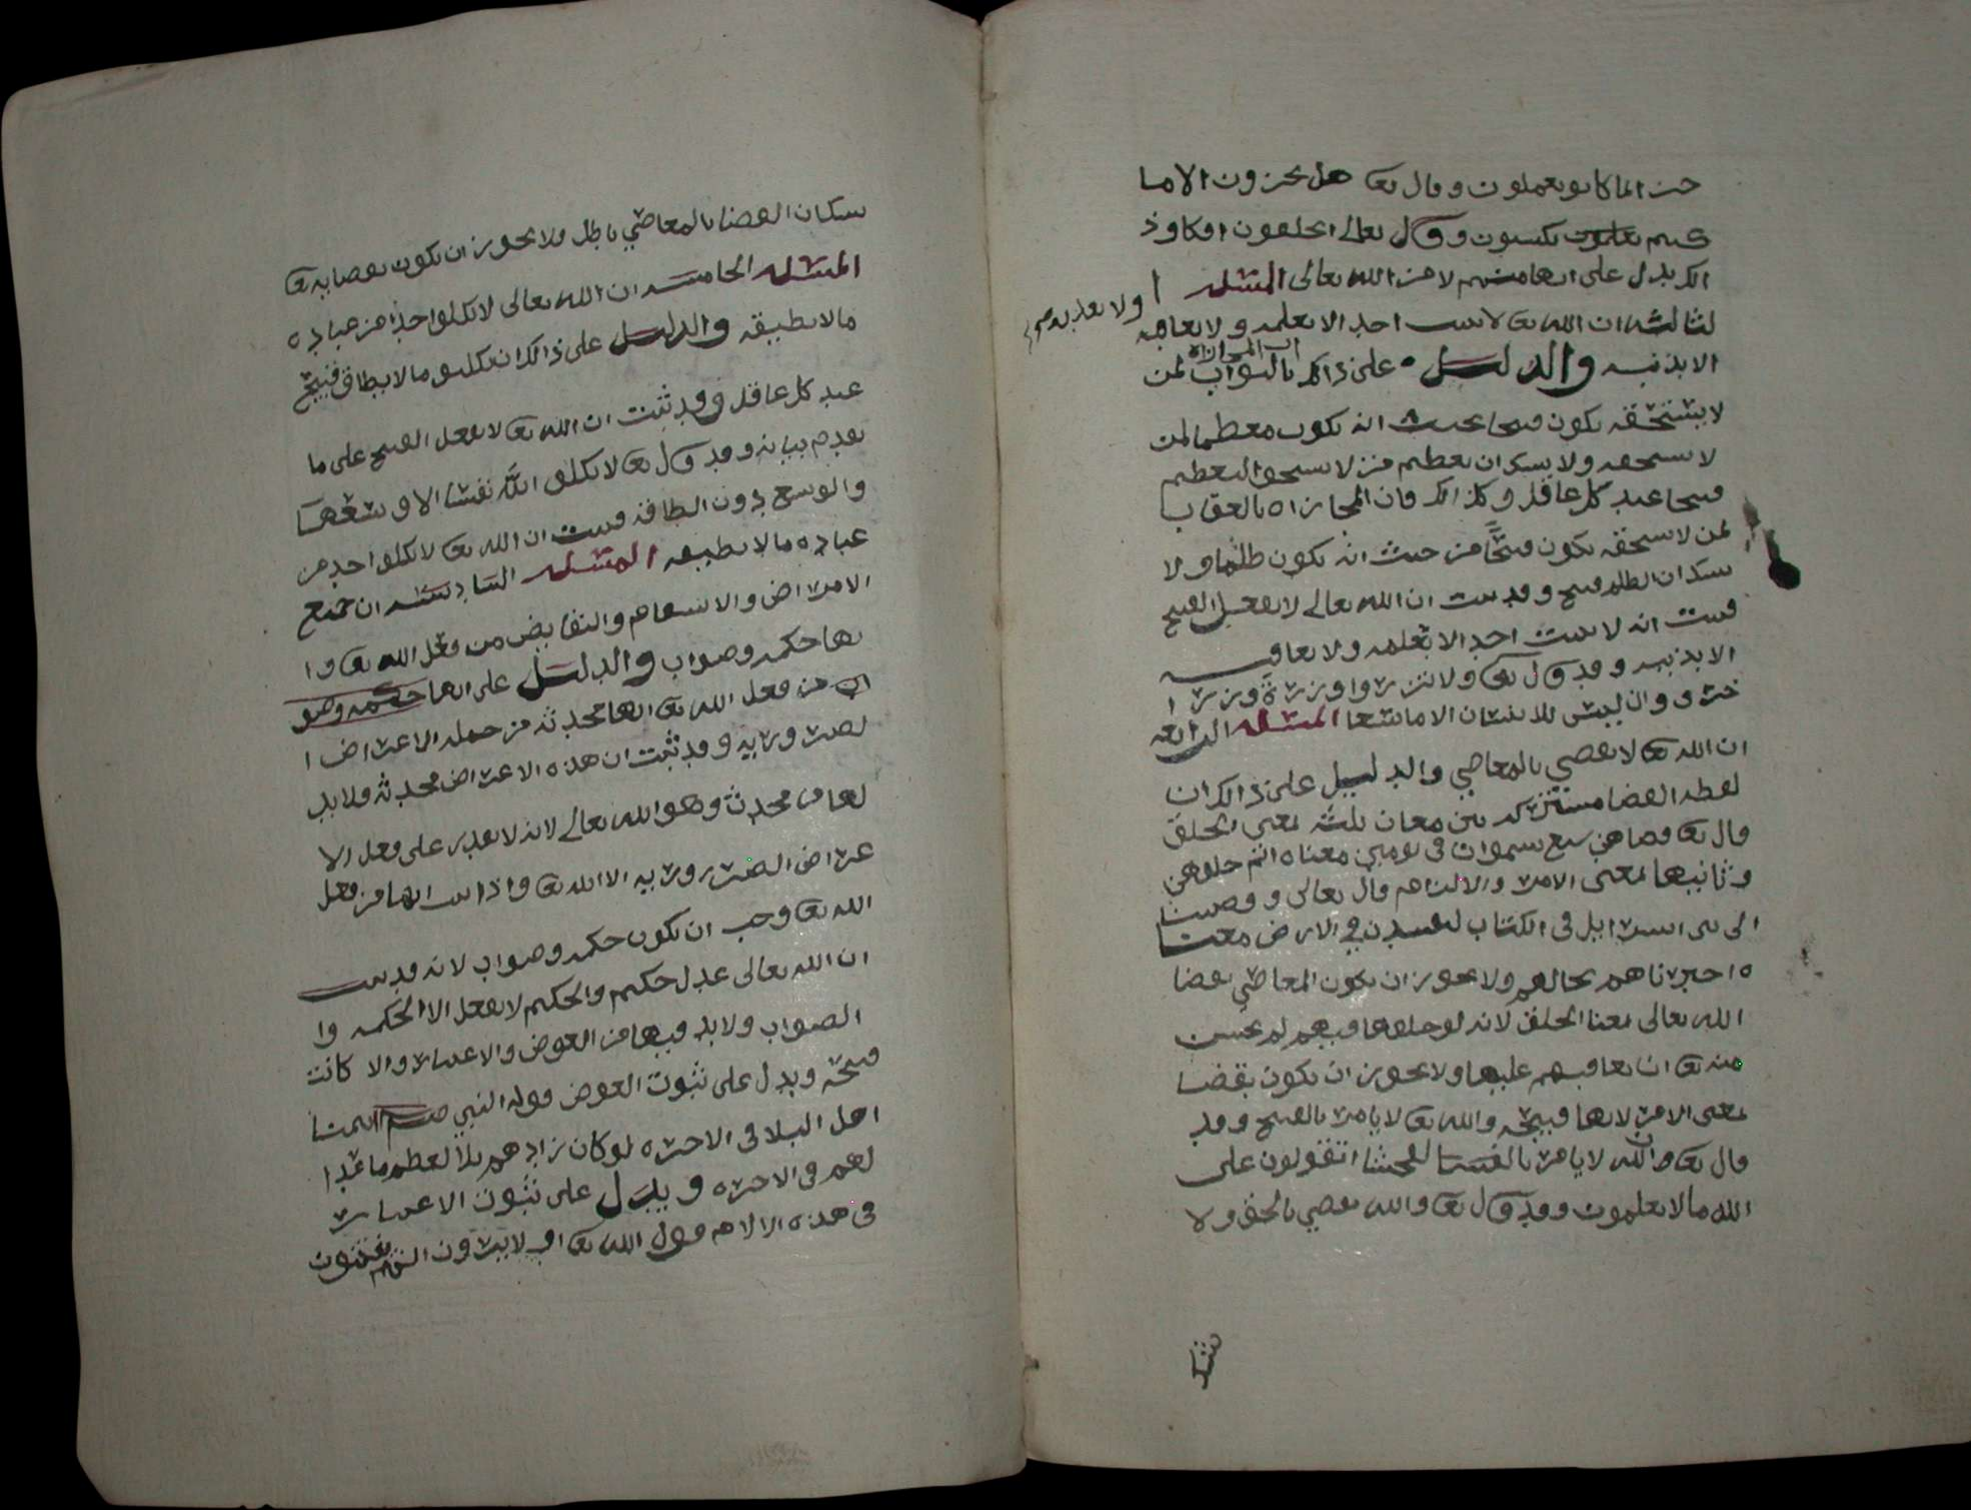 جزا بما كانوا يعملون وقال تعا هل تجزون الا ما
كنتم تعملون تكسبون وقال تعالى اتخلقون افكا وذ
الك يدل على انها منهم لا من الله تعالى المسئلة ا
لثالثة ان الله تعا لا يثيب احدا الا بعلمه ولا يعاقبه
ولا يعذبه صح
الا بذنبه والدليل على ذالك ان المجازاه بالثواب لمن
لا يستحقه يكون قبيحا بحيث انه يكون معظما لمن
لا يستحقه ولا يشك ان تعظيم من لا يستحق التعظيم
قبيحا عند كل عاقل وكذالك فان المجازاه بالعقاب
لمن لا يستحقه يكون قبيحا من حيث انه يكون ظلما ولا
يشك ان الظلم قبيح وقد ثبت ان الله تعالى لا يفعل القبيح
فثبت انه لا يثيب احدا الا بعلمه ولا يعاقبه
الا بذنبه وقد قال تعا ولا تزر وازرة وزر ا
خرى وان ليس للانسان الا ما سعا المسئلة الرابعه
ان الله تعا لا يقضي بالمعاصي والدليل على ذالك ان
لفظه القضا مشترك بين معان ثلثه بمعنى الخلق
قال تعا فقضاهن سبع سموات في يومين معناه اتم خلقهن
وثانيها بمعنى الامر والالزام قال تعالى وقضينا
الى بني اسرائيل في الكتاب لتفسدن في الارض معنا
ه اخبرناهم بحالهم ولا يجوز ان يكون المعاصي بقضا
الله تعالى بمعنا الخلق لانه لو خلقها فيهم لم يحسن
منه تعا ان يعاقبهم عليها ولا يجوز ان تكون بقضا
بمعنى الامر لانها قبيحه والله تعا لا يامر بالقبيح وقد
قال تعا ان الله لا يامر بالفحشا اتقولون على
الله ما لا تعلمون وقد قال تعا والله يقضي بالحق ولا
يشك ان القضا بالمعاصي باطل فلا يجوز ان تكون بقضايه تعا
المسئلة الخامسه ان الله تعالى لا يكلف احدا من عباده
ما لا يطيقه والدليل على ذالك ان تكليف ما لا يطاق قبيح
عند كل عاقل وقد ثبت ان الله تعا لا يفعل القبيح على ما
تقدم بيانه وقد قال تعا لا يكلف الله نفسا الا وسعها
والوسع دون الطاقه فثبت ان الله تعا لا يكلف احد من
عباده ما لا يطيقه المسئلة السادسه ان جميع
الامراض والاسقام والنقايض من فعل الله تعا وا
نها حكمه وصواب والدليل على انها حكمه وصو
اب من فعل الله تعا انها محدثه من جمله الاعراض ا
لضروريه وقد ثبت ان هذه الاعراض محدثه ولا بد
لها من محدث وهو الله تعالى لانه لا يقدر على فعل الا
عراض الضروريه الا الله تعا واذا ثبت انها من فعل
الله تعا وجب ان تكون حكمه وصواب لانه قد ثبت
ان الله تعالى عدل حكيم والحكيم لا يفعل الا الحكمه وا
لصواب ولا بد فيها من العوض والاعتبار والا كانت
قبيحه ويدل على ثبوت العوض قوله النبي صلعم
اهل البلا في الاخره لو كان زادهم بلا لعظم ما
لهم في الاخره ويدل على ثبوت الاعتبار
في هذه الالام قول الله تعا اولا يرون انهم يفتنون